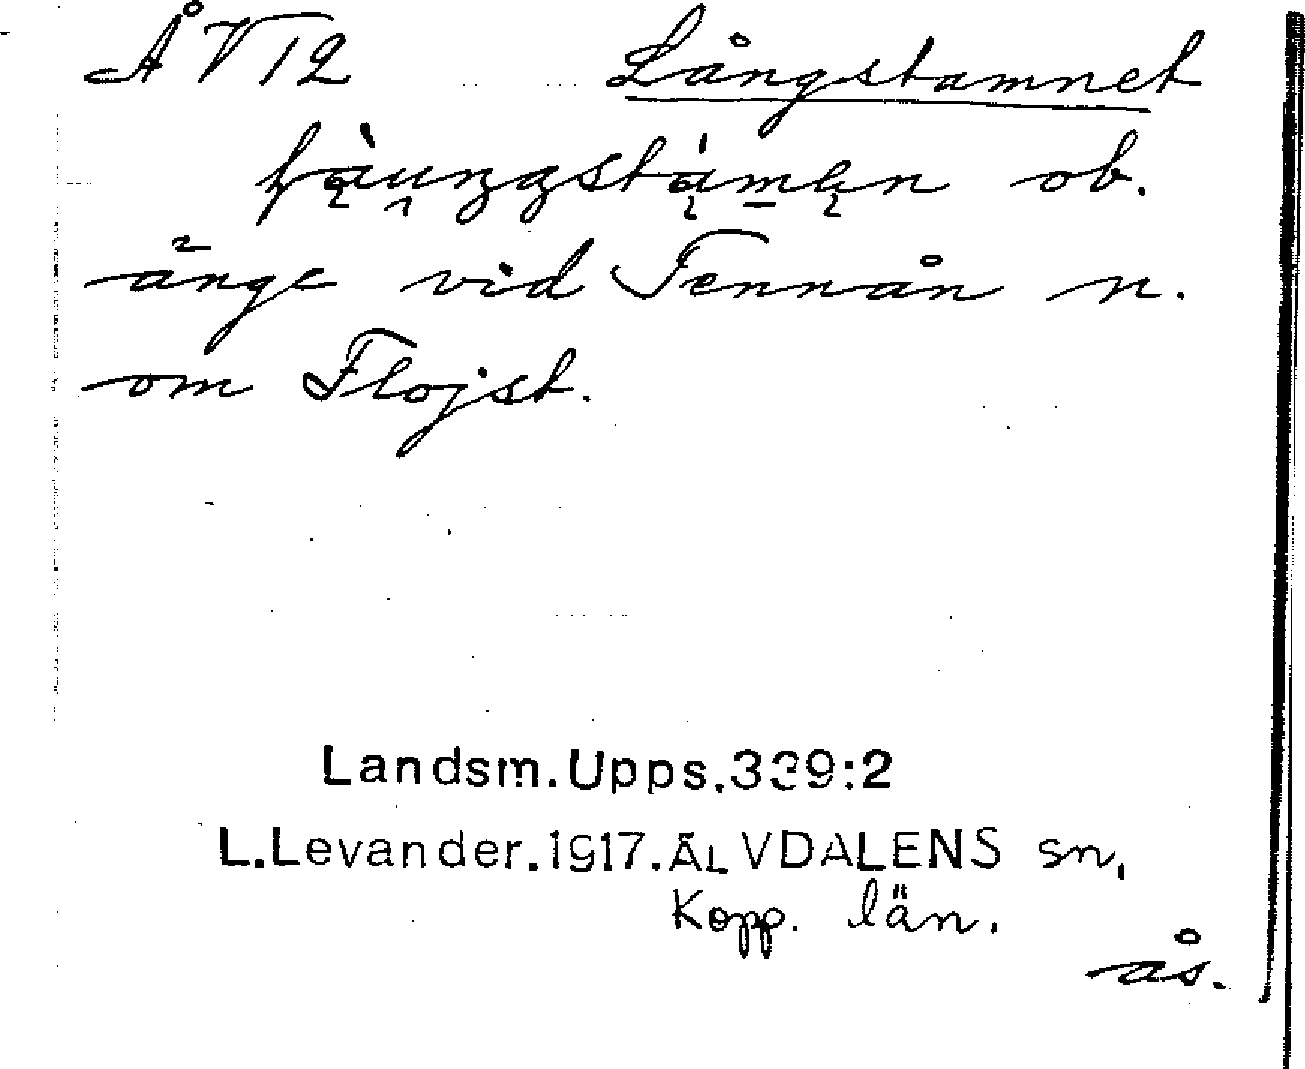 ÅV12 Långstamnet
ob.
änge vid Tennån n.
om Flojst.
Landsm.Upps.339:2
L.Levander.1917.ÄLVDALENS sn.
Kopp. län.
ås.